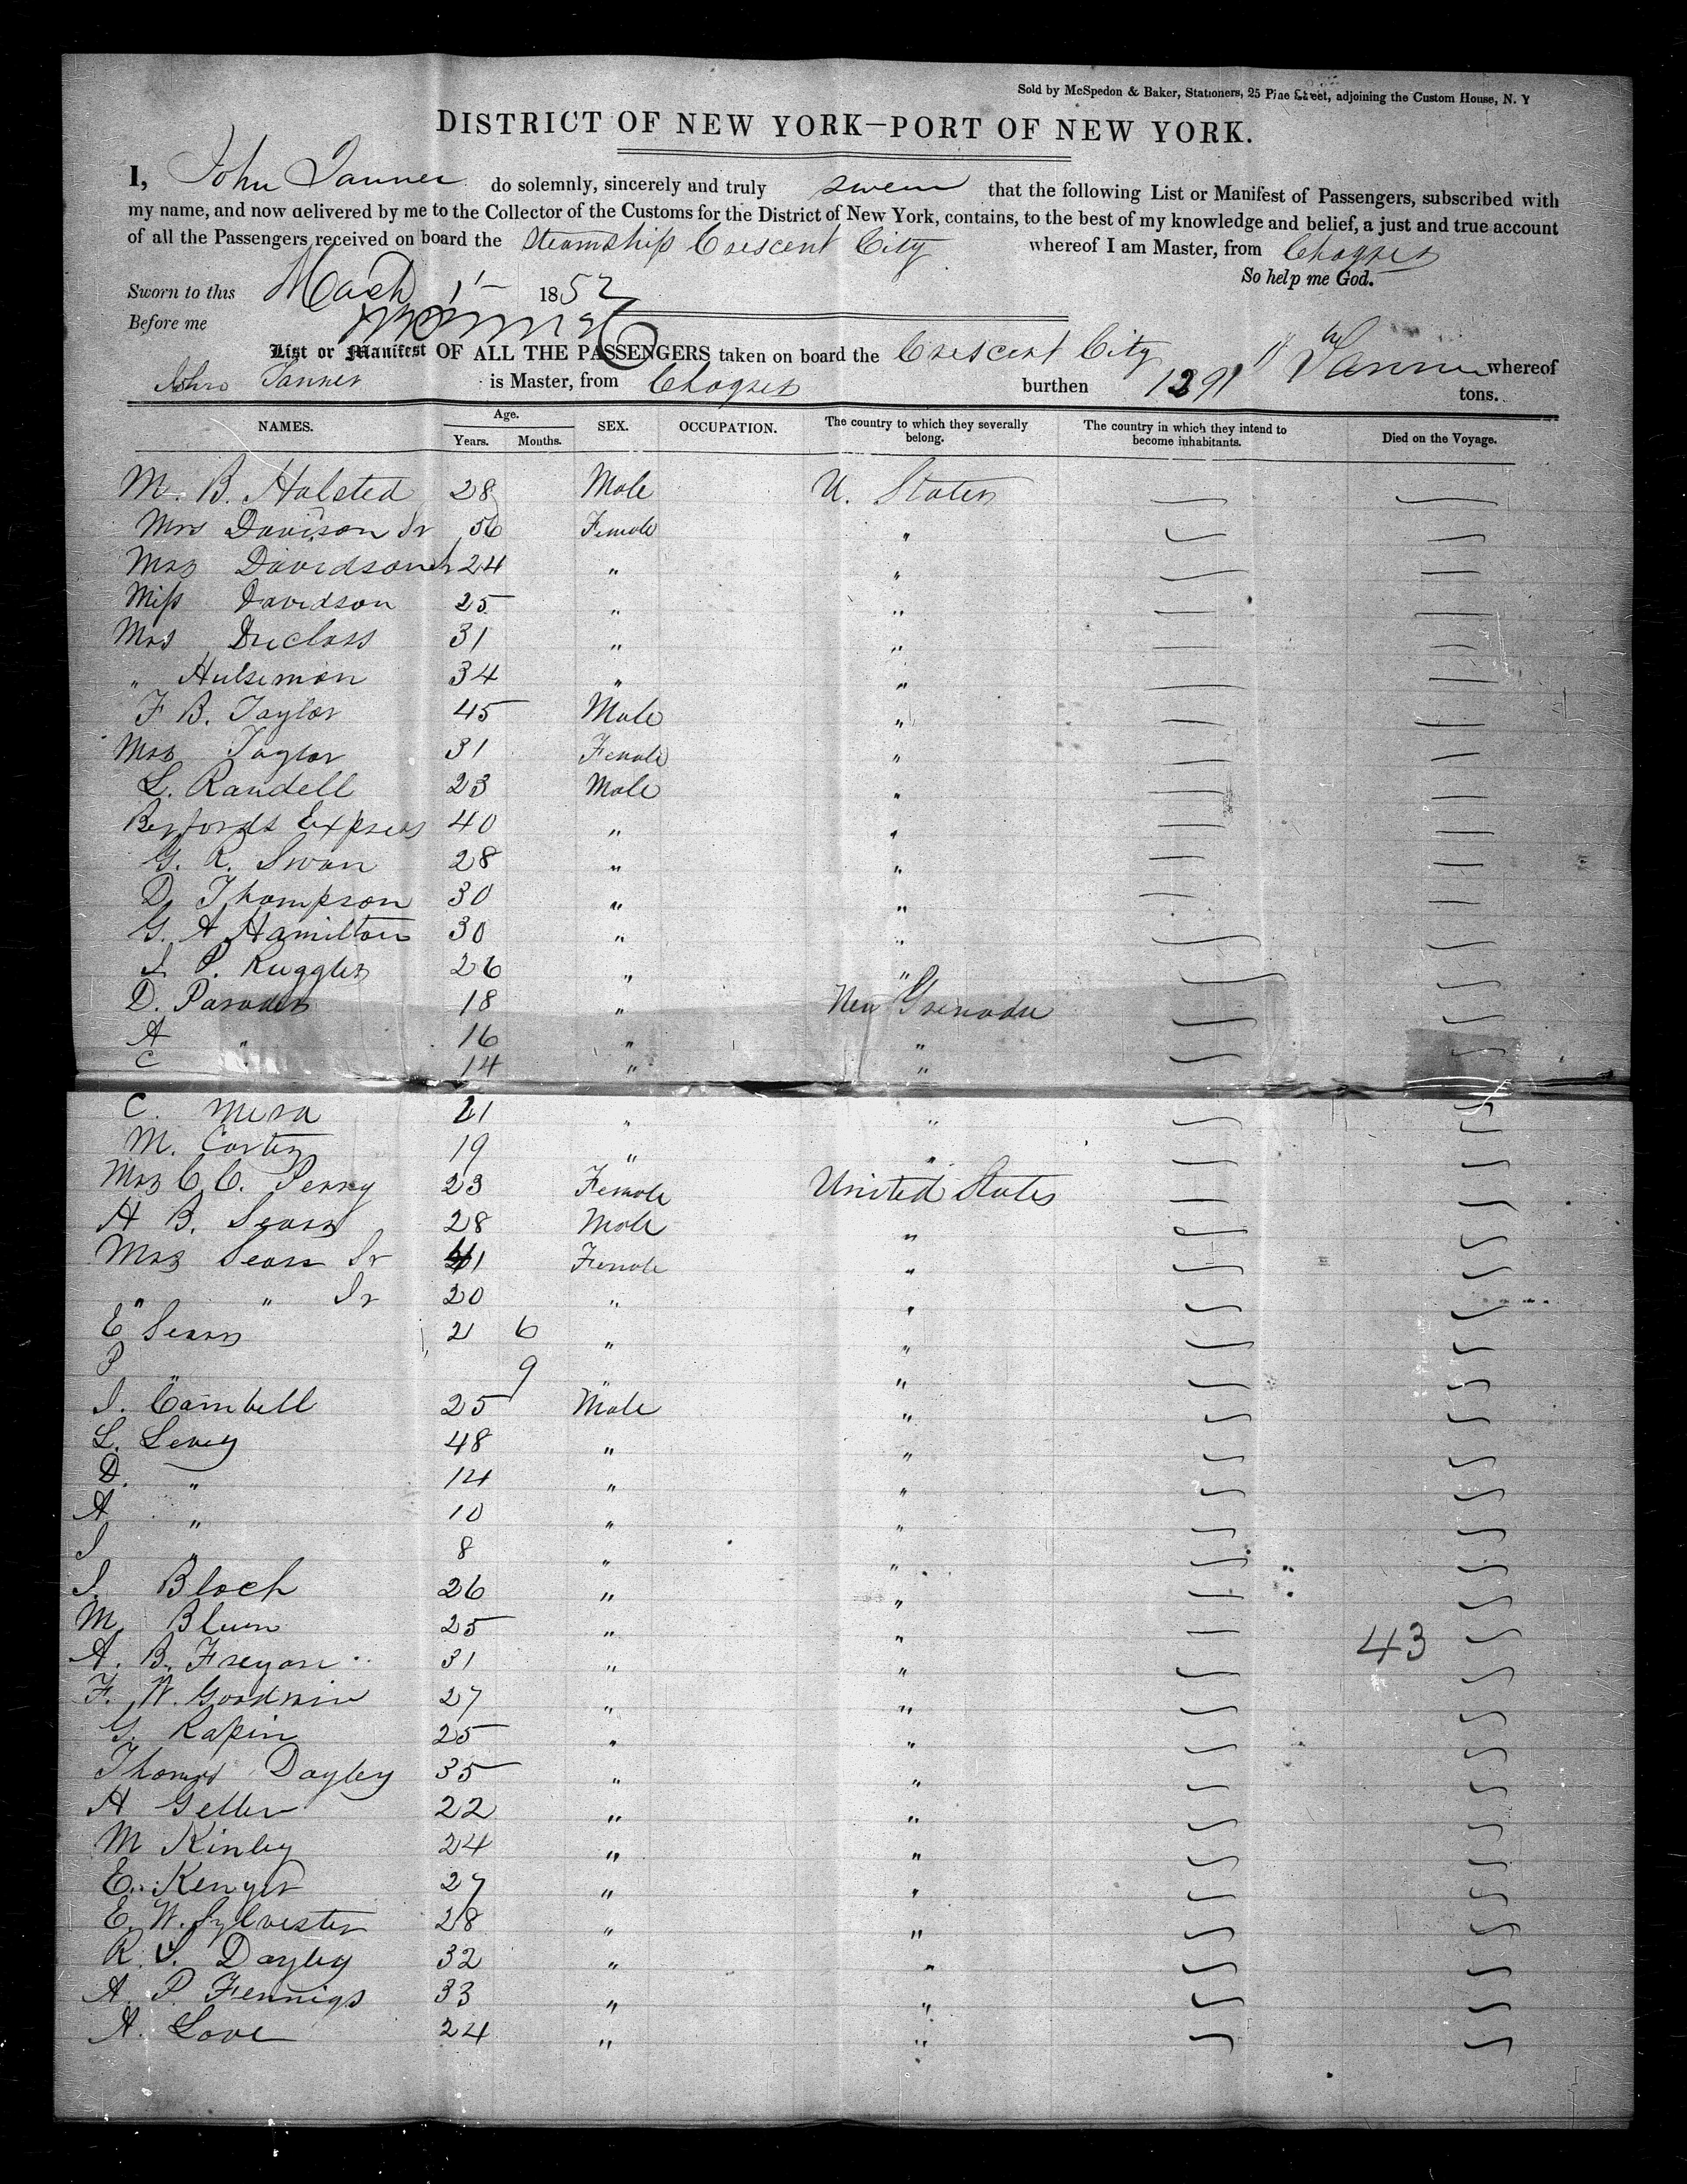 Sold by McSpedon & Baker, Stationers, 25 Pine Street, adjoining the Custom House, N. Y
DISTRICT OF NEW YORK—PORT OF NEW YORK.
I, John Tanner do solemnly, sincerely and truly swear that the following List or Manifest of Passengers, subscribed with
my name, and now delivered by me to the Collector of the Customs for the District of New York, contains, to the best of my knowledge and belief, a just and true account
of all the Passengers received on board the Steamship Crescent City whereof I am Master, from Chagres
So help me God.
Sworn to this March 1 1852
Before me
List or Manifest OF ALL THE PASSENGERS taken on board the Crescent City whereof
John Tanner is Master, from Chagres burthen 1291 tons.
NAMES. Age. Years. Months. SEX. OCCUPATION. The country to which they severally belong. The country in which they intend to become inhabitants. Died on the Voyage.
M. B. Halsted 28 Male U. States
Mrs Davison Sr 56 Female "
Mrs Davidson Jr 24 " "
Miss Davidson 25 " "
Mrs Duclass 31 " "
" Hulseman 34 " "
F B. Taylor 45 Male "
Mrs Taylor 31 Female "
L. Randell 23 Male "
Berfords Express 40 " "
G. R. Swan 28 " "
D. Thompson 30 " "
G. A Hamilton 30 " "
S. P. Ruggles 26 " "
D. Paroder 18 " New Grenada
A " 16 " "
C 14 " "
C. Mesa 21 " "
M. Cortes 19 " "
Mrs C C. Perry 23 Female United States
H B. Sears 28 Male "
Mrs Sears Sr 41 Female "
" " Jr 20 " "
E Sears 2 6 " "
P " 9 " "
J. Cambell 25 Male "
L. Levey 48 " "
D. " 14 " "
A " 10 " "
J " 8 " "
J. Bloch 26 " "
M. Blum 25 " "
43
A. B. Freyon 31 " "
F. W. Goodwin 27 " "
G. Rapin 25 " "
Thomas Dayley 35 " "
A Geller 22 " "
M Kinley 24 " "
E. Kenyer 27 " "
E. W. Sylvester 28 " "
R. S. Dayley 32 " "
A. P. Fennigs 33 " "
A. Love 24 " "